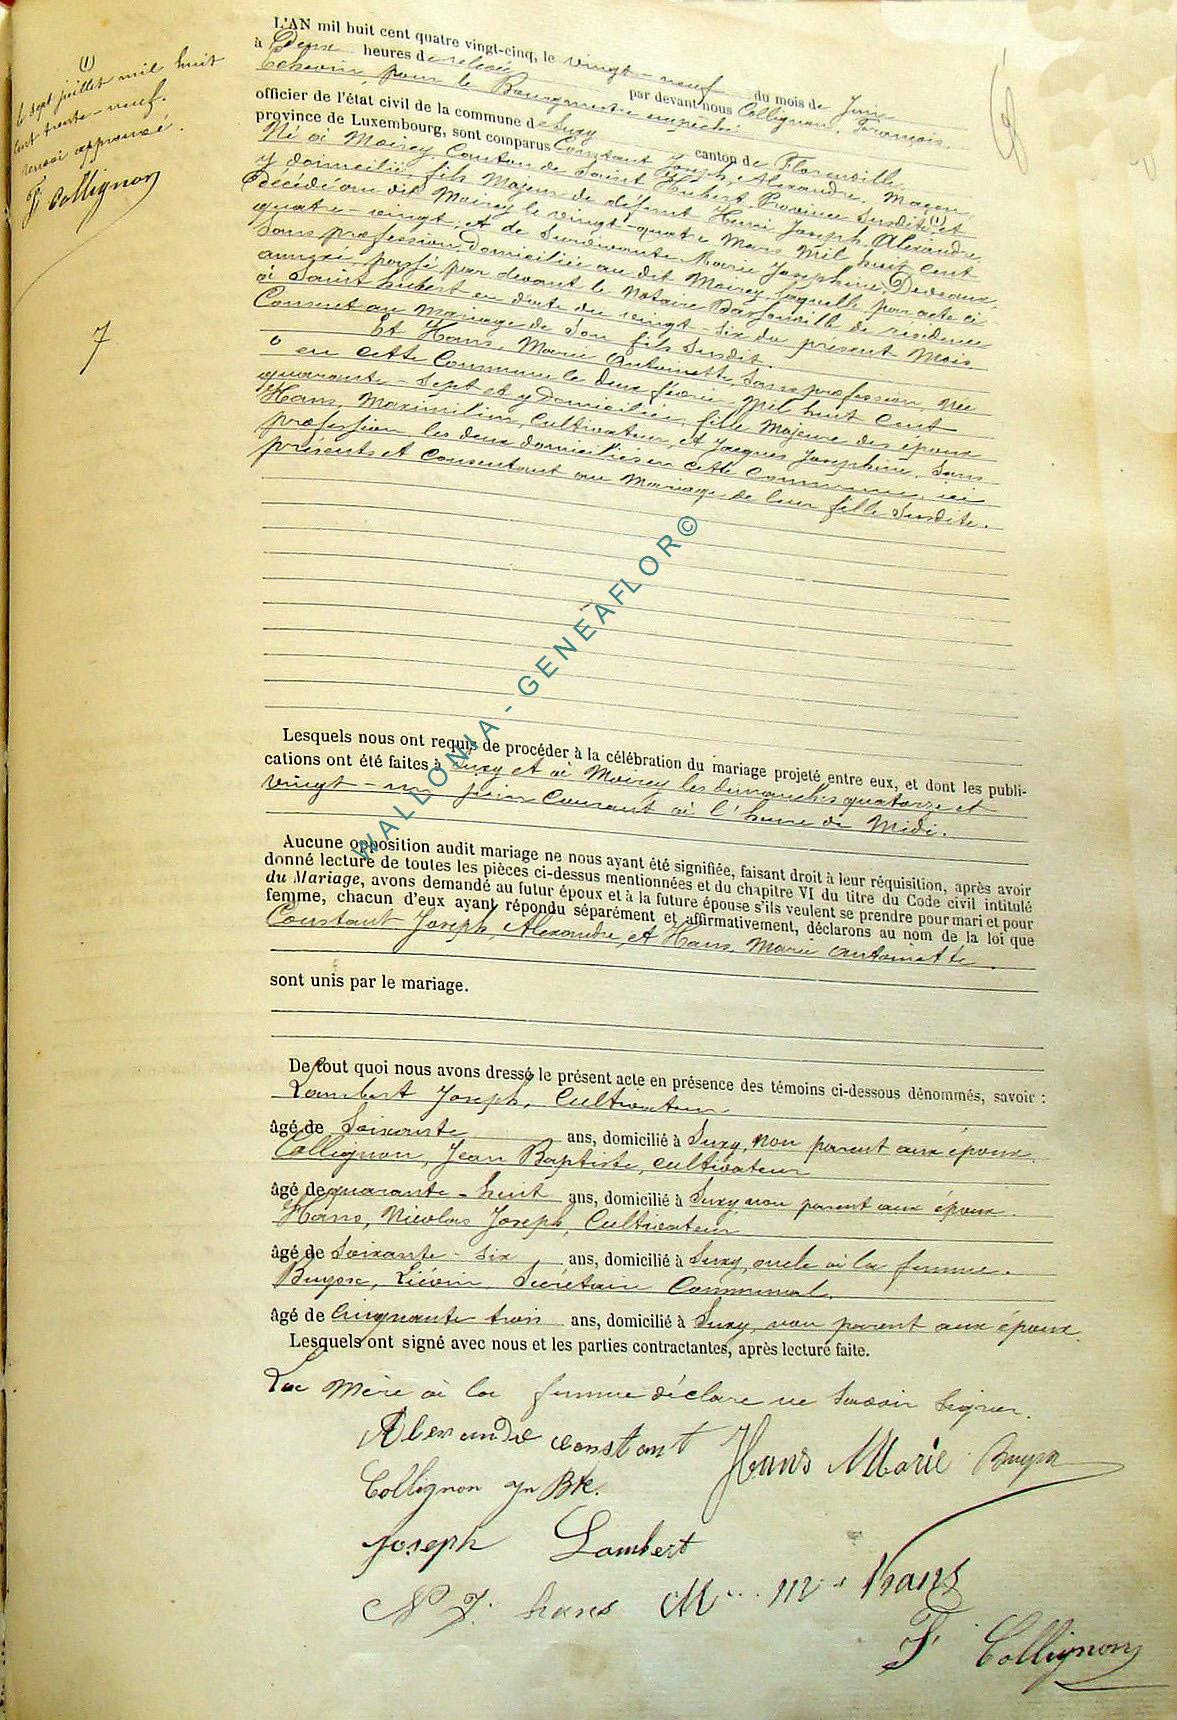 (1)
le sept juillet mil huit
cent trente-neuf.
renvoi approuvé.
F Collignon
7
L'AN mil huit cent quatre vingt-cinq, le vingt-neuf du mois de Juin
à Deux heures de relevée par devant nous Collignon, François
Echevin, pour le Bourgmestre empêché
officier de l'état civil de la commune de Suxy canton de Florenville
province de Luxembourg, sont comparus Constant Joseph, Alexandre, Maçon
Né à Moircy, Canton de Saint Hubert, Province Susdite, (1) et
y domicilié, fils Majeur de défunt Henri Joseph, Alexandre,
Décédé au dit Moircy le vingt-quatre Mars Mil huit Cent
quatre-vingt, et de Survivante Marie Josephine, Deveaux,
Sans profession, domiciliée au dit Moircy, laquelle par acte ci
annexé, passé par devant le Notaire de résidence
à Saint Hubert en date du vingt-six du présent Mois
Consent au Mariage de Son fils Susdit.
Et Hans, Marie Antoinette, Sans profession, née
en cette Commune le deux février Mil huit Cent
quarante-sept et y domiciliée, fille Majeure des époux
Hans, Maximilien, Cultivateur, et Jacques Josephine, Sans
profession, les deux domiciliés en cette Commune, ici
présents et Consentant au Mariage de leur fille Susdite.
WALLONIA - GENEAFLOR©
Lesquels nous ont requis de procéder à la célébration du mariage projeté entre eux, et dont les publi-
cations ont été faites à Suxy et à Moircy les dimanches quatorze et
vingt-un juin Courant à l'heure de Midi.
Aucune opposition audit mariage ne nous ayant été signifiée, faisant droit à leur réquisition, après avoir
donné lecture de toutes les pièces ci-dessus mentionnées et du chapitre VI du titre du Code civil intitulé
du Mariage, avons demandé au futur époux et à la future épouse s'ils veulent se prendre pour mari et pour
femme, chacun d'eux ayant répondu séparément et affirmativement, déclarons au nom de la loi que
Constant Joseph, Alexandre, et Hans, Marie Antoinette
sont unis par le mariage.
De tout quoi nous avons dressé le présent acte en présence des témoins ci-dessous dénommés, savoir :
Lambert Joseph, Cultivateur
âgé de Soixante ans, domicilié à Suxy, non parent aux époux.
Collignon, Jean Baptiste, cultivateur
âgé de quarante-huit ans, domicilié à Suxy, non parent aux époux.
Hans, Nicolas Joseph, Cultivateur
âgé de Soixante-six ans, domicilié à Suxy, oncle à la femme.
Buysx, Liévin, Secrétaire Communal.
âgé de Cinquante trois ans, domicilié à Suxy, non parent aux époux.
Lesquels ont signé avec nous et les parties contractantes, après lecture faite.
La Mère à la femme déclare ne Savoir Signer.
Alexandre constant Hans Marie
Collignon Jn Bte.
Joseph Lambert
N J. hans M hans
F Collignon